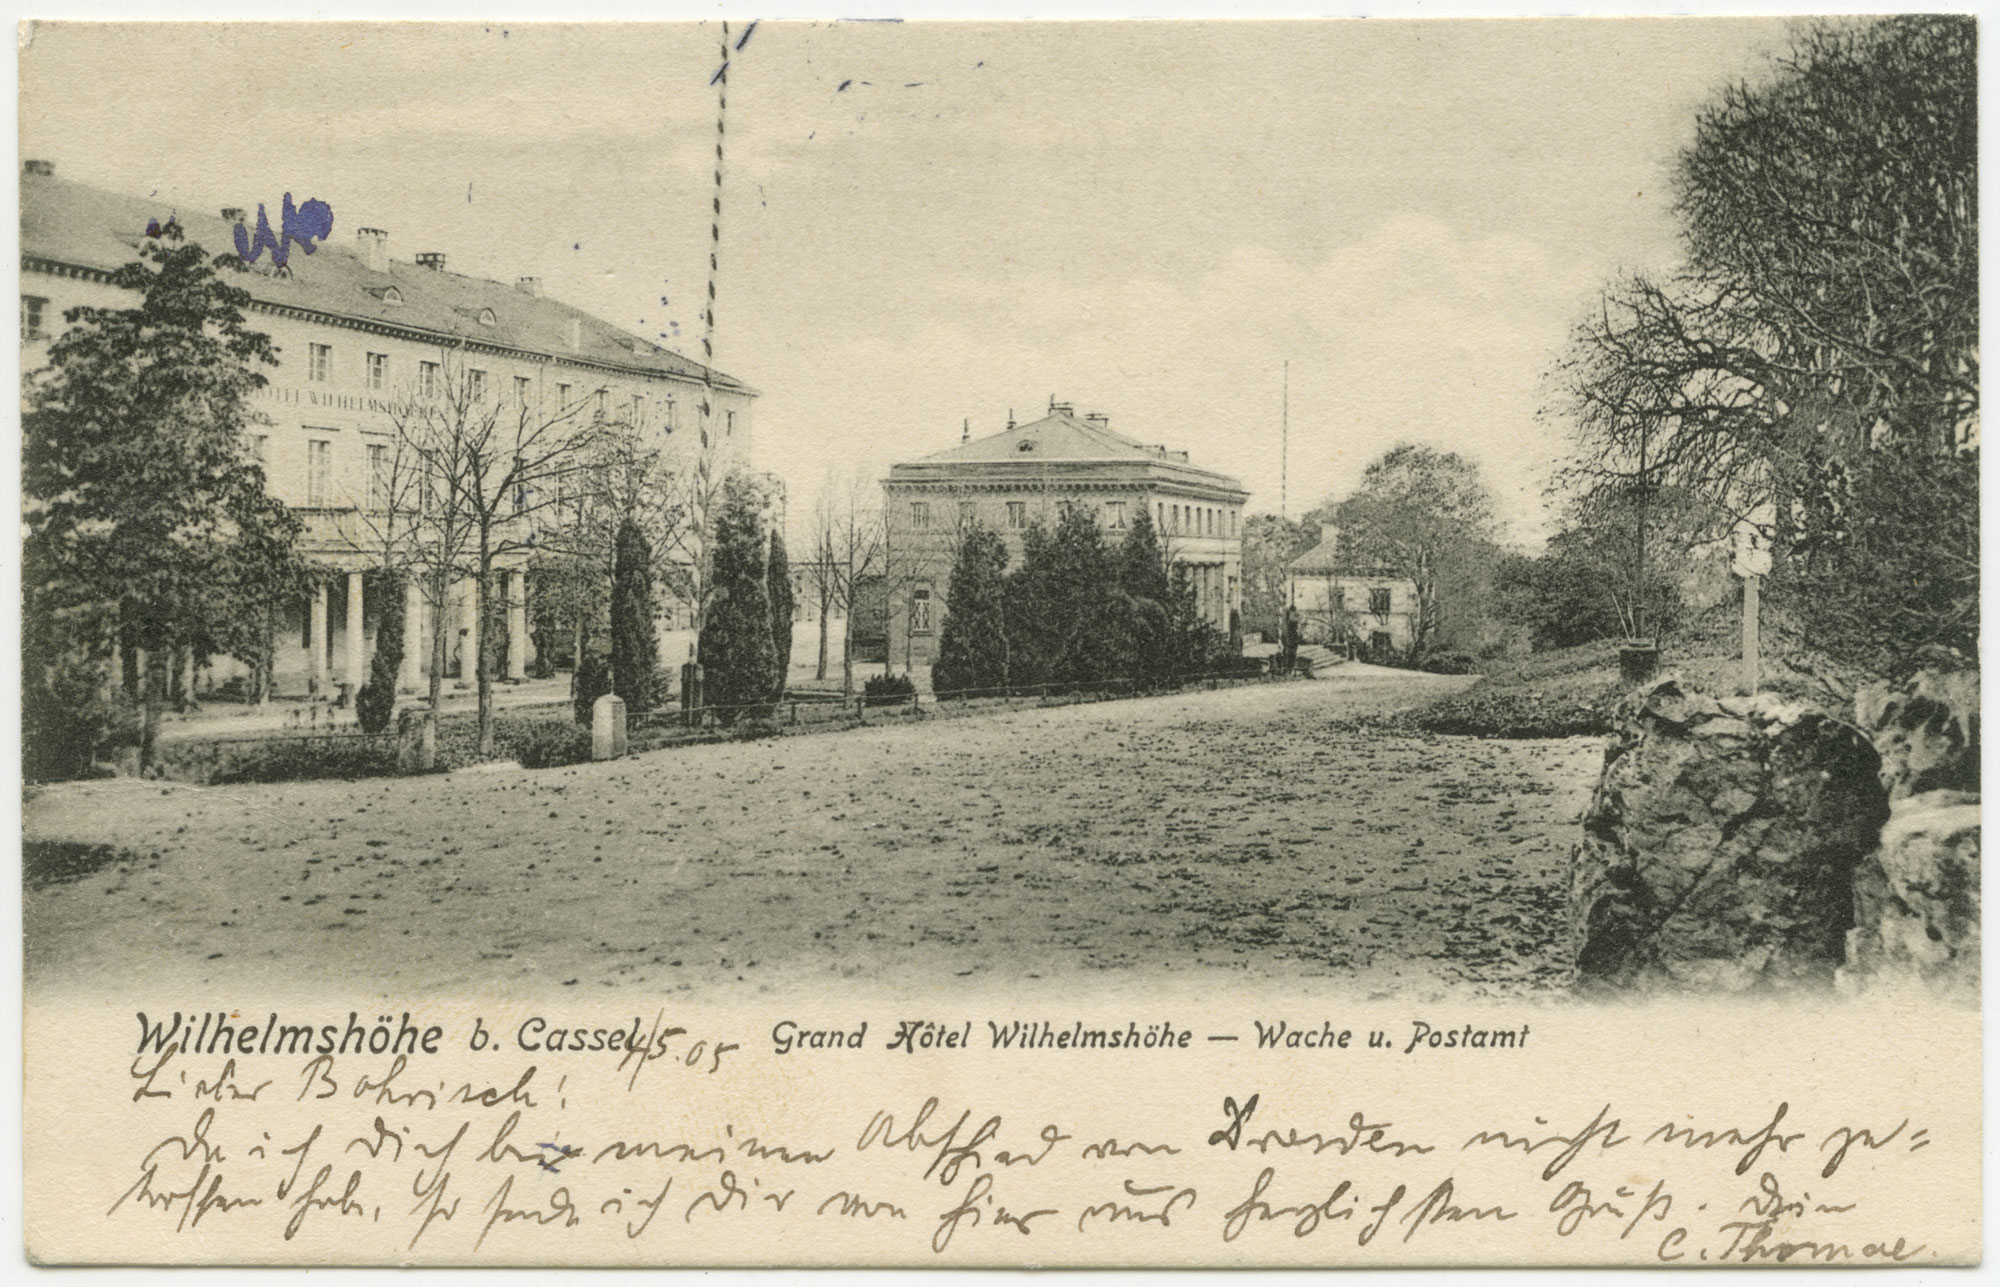 HOTEL WILHELMSHOEHE
Wilhelmshöhe b. Cassel 4/5.05 Grand Hôtel Wilhelmshöhe — Wache u. Postamt
Lieber Bohrisch!
Da ich Dich bei meinen Abschied von Dresden nicht mehr ge=
troffen habe, so sende ich Dir von hier aus herzlichsten Gruß. Dein
C. Thomae.